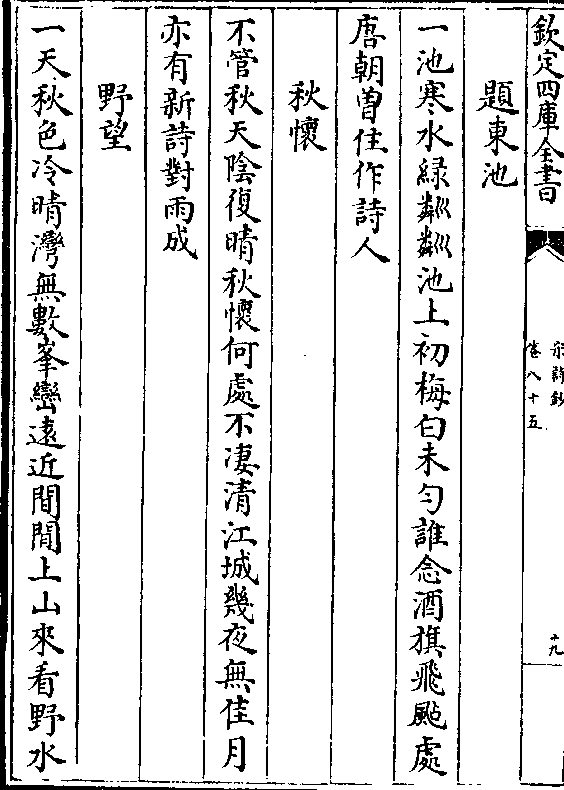 欽定四庫全書
宋詩鈔
卷八十五
十九
題東池
一池寒水緑粼粼池上初梅白未匀誰念酒旗飛颭處
唐朝曽住作詩人
秋懷
不管秋天陰復晴秋懷何處不凄清江城幾夜無佳月
亦有新詩對雨成
野望
一天秋色冷晴灣無數峯巒逺近間閒上山來看野水